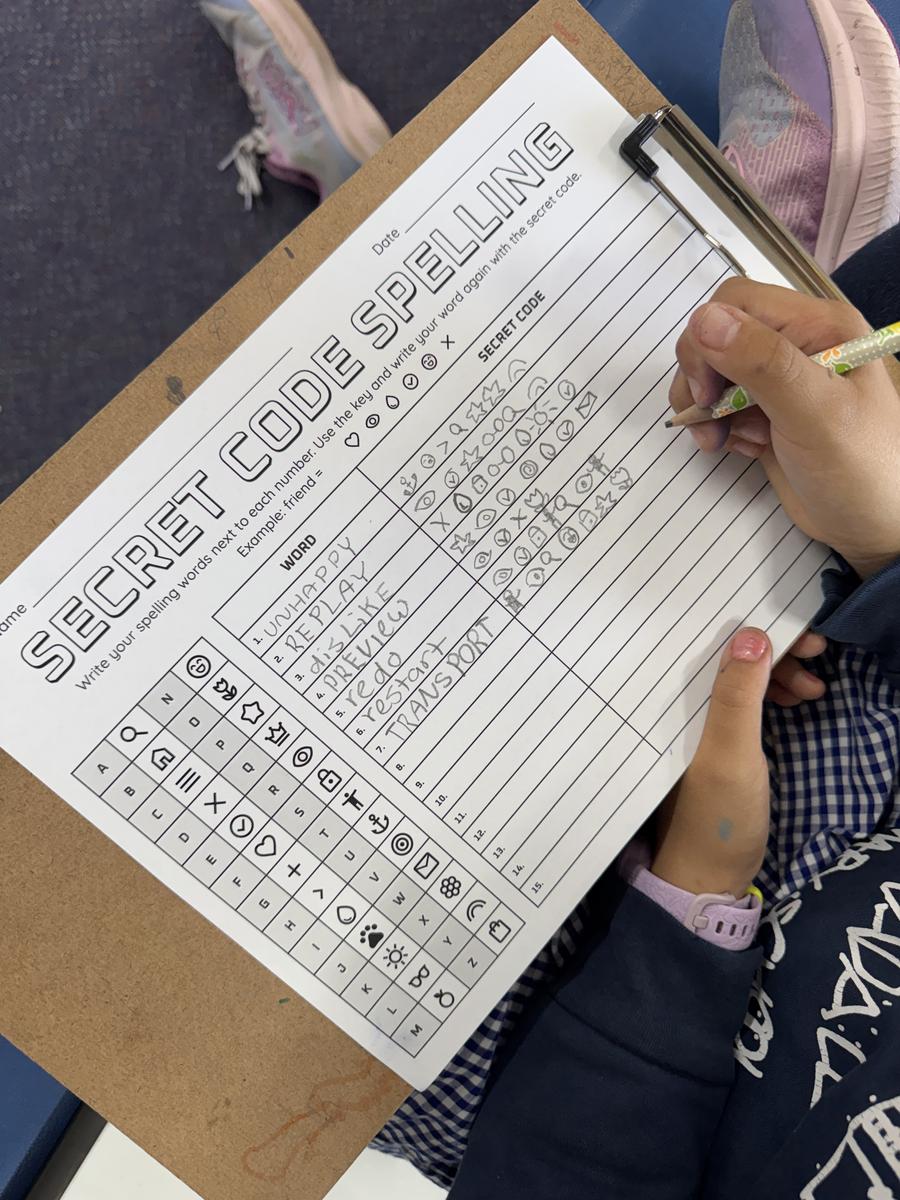 Name Date
SECRET CODE SPELLING
Write your spelling words next to each number. Use the key and write your word again with the secret code.
Example: friend =
WORD SECRET CODE
1. UNHAPPY
2. REPLAY
3. disLiKE
4. PREView
5. redo
6. restart
7. TRANSPORT
8.
9.
10.
11.
12.
13.
14.
15.
A N
B O
C P
D Q
E R
F S
G T
H U
I V
J W
K X
L Y
M Z